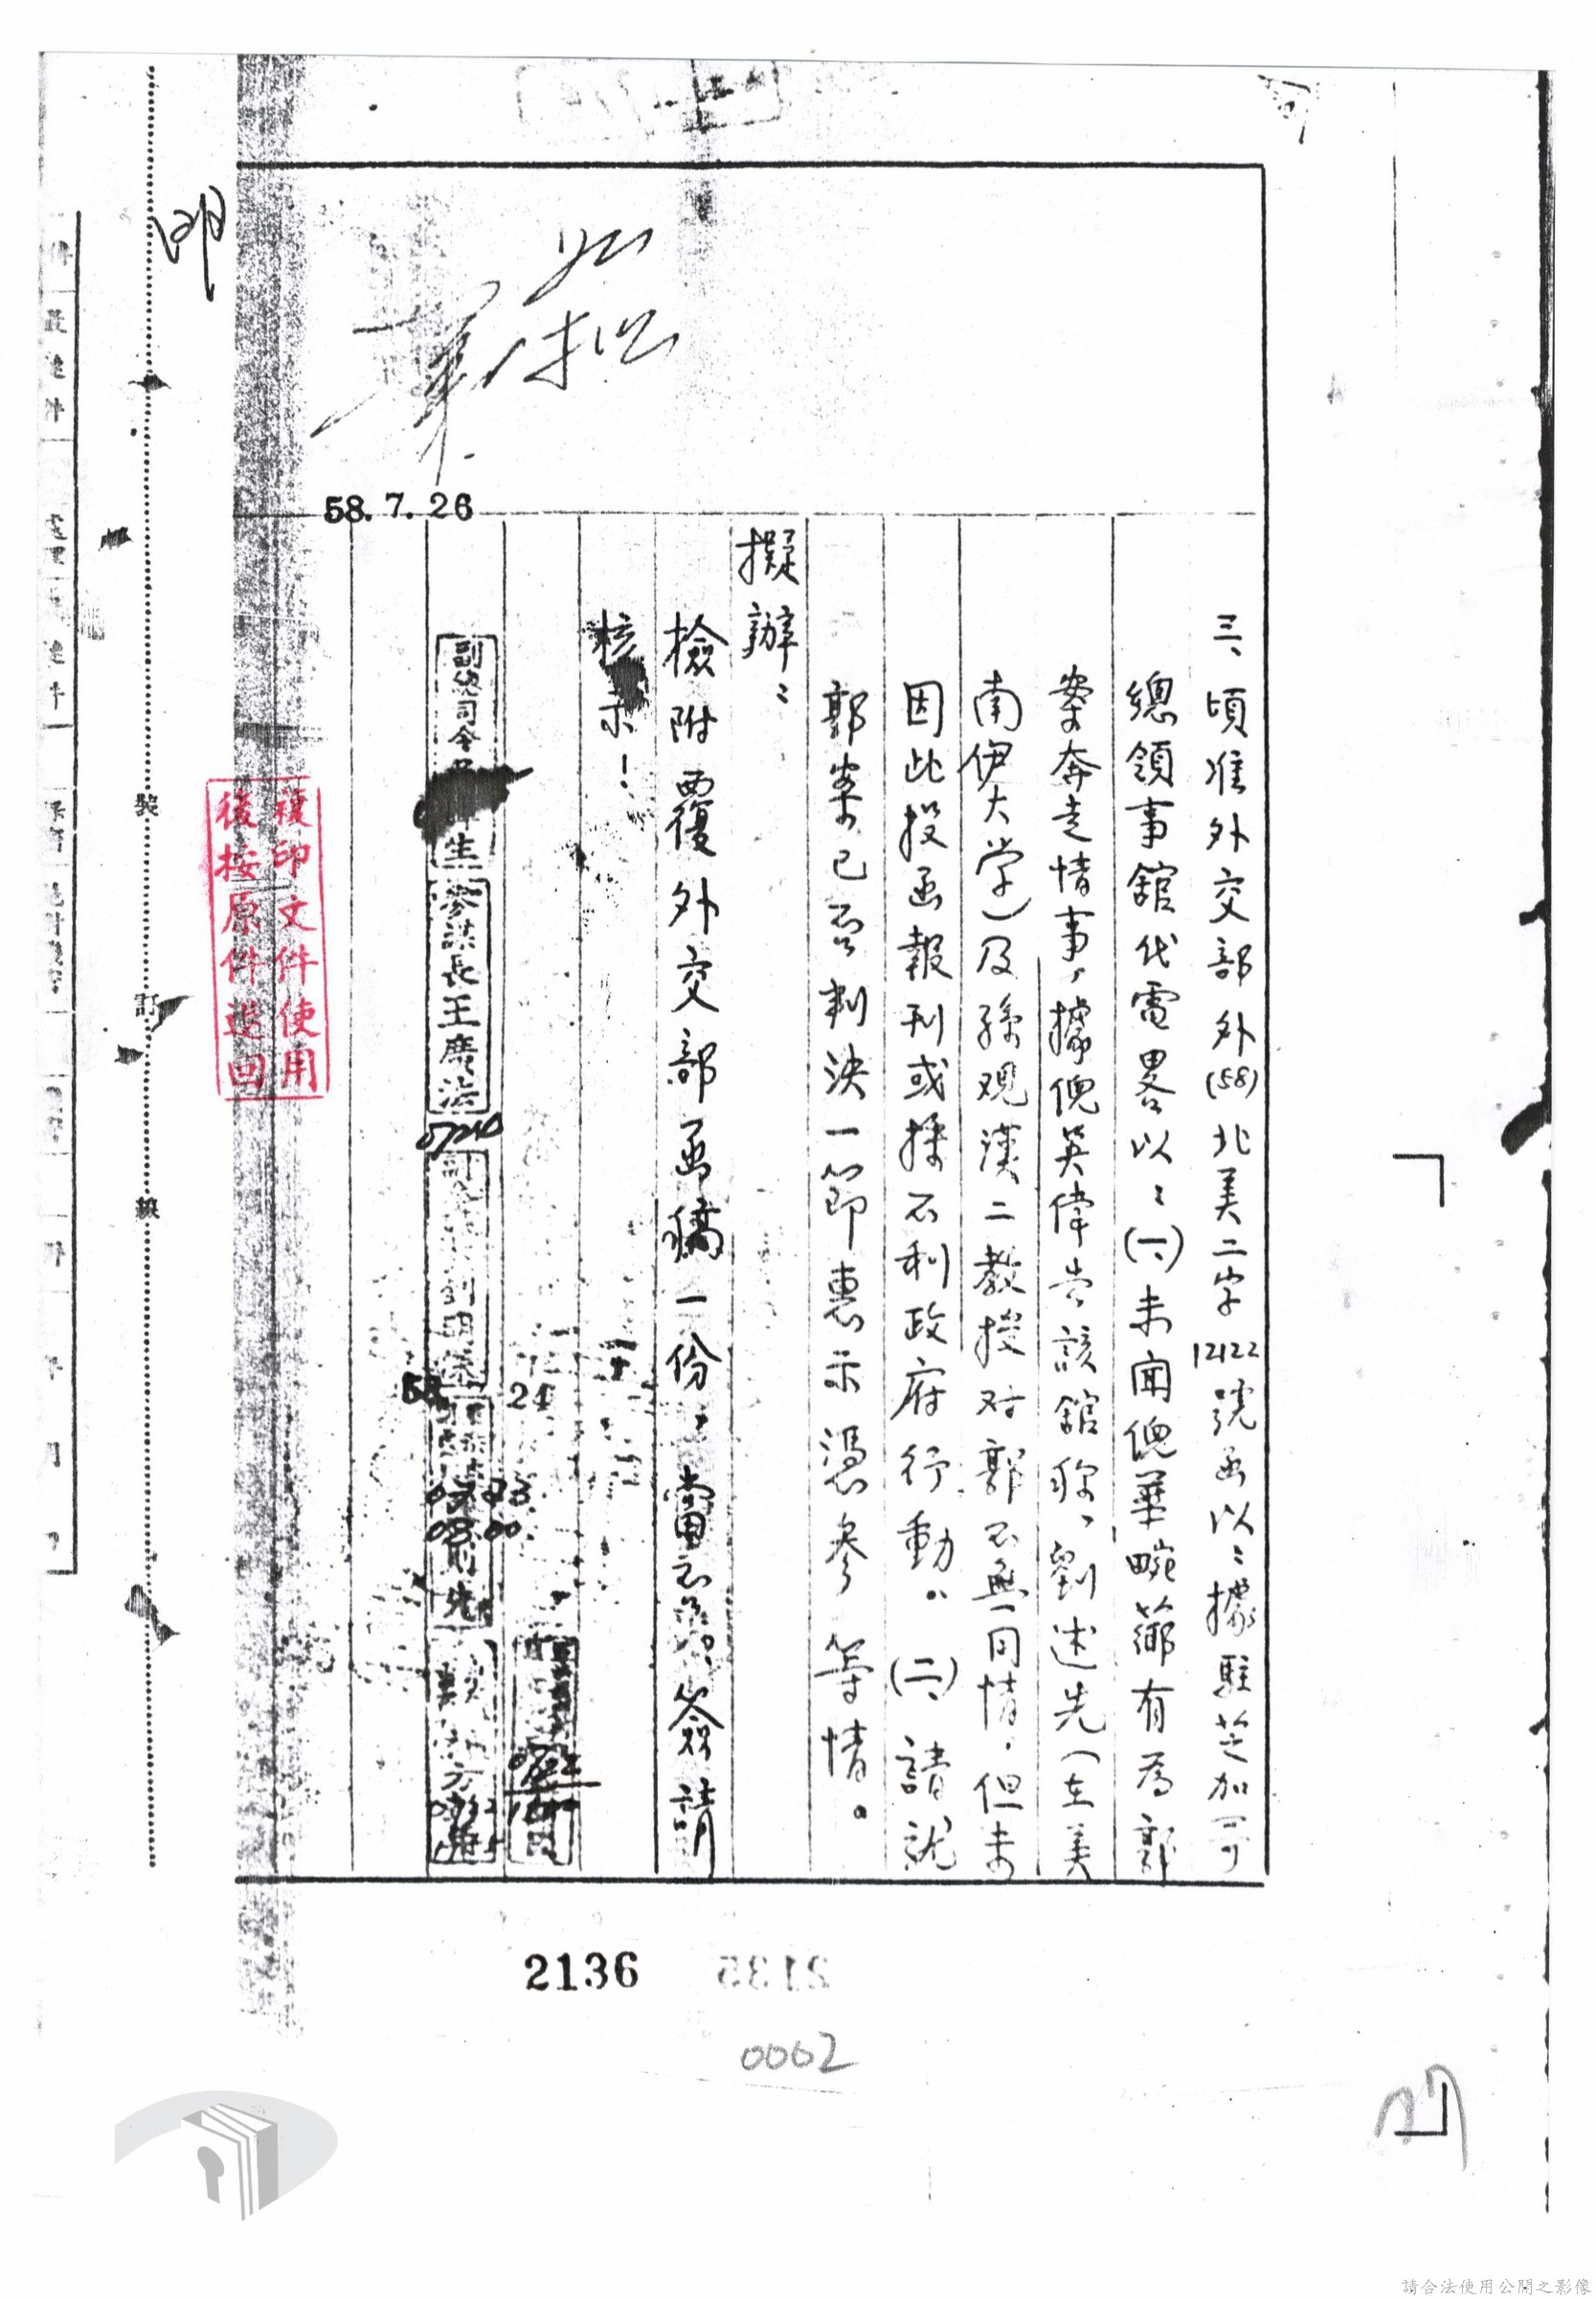 三、頃准外交部外(58)北美二字12122號函以：據駐芝加哥
總領事館代電畧以：(一)未聞倪華畹薌有為郭
案奔走情事，據倪英偉告該館稱，劉述先（在美
南伊大学）及孫观漢二教授对郭不無同情，但未
因此投函報刊或採不利政府行動。(二)請就
郭案已否判決一節惠示憑參等情。
擬辦：
檢附覆外交部函稿一份，當否？簽請
核示！
副總司令 生
參謀長王廣法
0724
24
58.7.26
複印文件使用
後按原件退回
裝
訂
線
最速件
速件
2136
2135
0062
請合法使用公開之影像